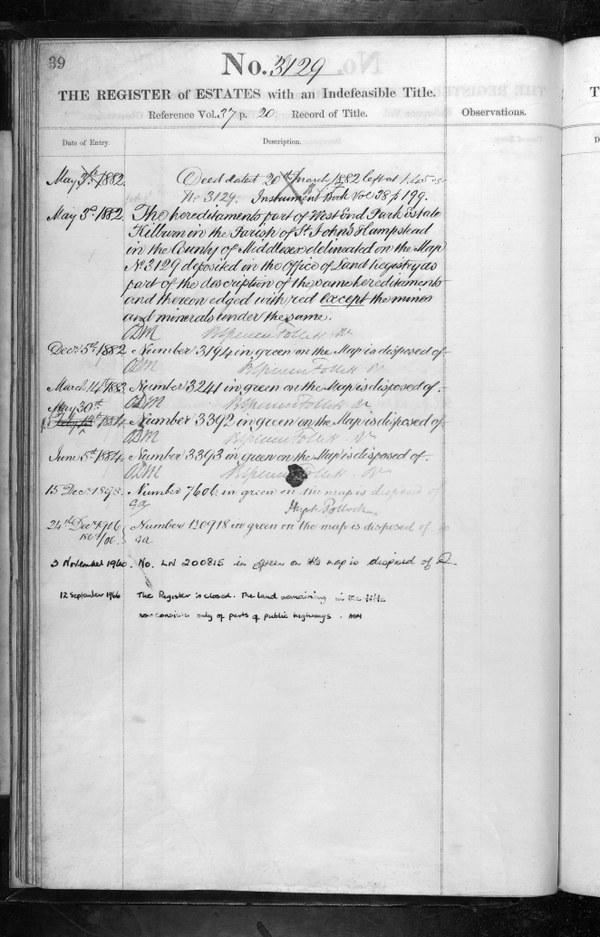 39
No. 3129
THE REGISTER of ESTATES with an Indefeasible Title.
Reference Vol. 37 p. 20 Record of Title.
Observations.
Date of Entry.
Description.
May 3rd 1882. Deed dated 20th March 1882 left at
No 3129. Instrument Book Vol 38 p 199.
May 3rd 1882. The hereditaments part of West End Park Estate
Kilburn in the Parish of St. Johns Hampstead
in the County of Middlesex delineated on the Map
No 3129 deposited in the Office of Land Registry as
part of the description of the same hereditaments
and thereon edged with red except the mines
and minerals under the same.
BSpencer Follett
Decr. 5th 1882 Number 3194 in green on the Map is disposed of
BSpencer Follett
March 14th 1883 Number 3241 in green on the Map is disposed of.
BSpencer Follett
May 30th
1884 Number 3392 in green on the Map is disposed of
BSpencer Follett
June 5th 1884 Number 3393 in green on the Map is disposed of.
BSpencer Follett
15 Decr. 1898. Number 7606 in green on the map is disposed of
Hugh Pollock
24th Decr 1906 Number 130918 in green on the map is disposed of
3 November 1960. No. LN 200815 in green on the map is disposed of
12 September 1966 The Register is closed. The land remaining in the title
now consists only of parts of public highways.